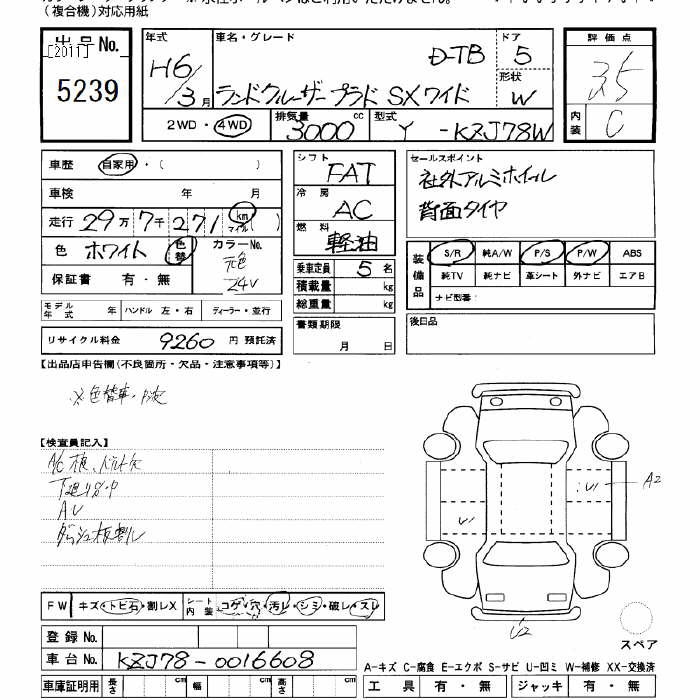 （複合機）対応用紙
出品No.
[2011]
5239
年式
H6/3月
車名・グレード
ランドクルーザープラド SXワイド
D-TB
ドア
5
形状
W
評価点
3.5
内装
C
2WD・4WD
排気量
3000cc
型式
Y -KZJ78W
車歴
自家用・（ ）
車検 年 月
走行 29万7千271 km マイル( )
色 ホワイト 色替 カラーNo.
元色
24V
保証書 有・無
モデル年式 年 ハンドル 左・右 ディーラー・並行
リサイクル料金 9260円 預託済
シフト
FAT
冷房
AC
燃料
軽油
乗車定員 5名
積載量 kg
総重量 kg
書類期限
月 日
セールスポイント
社外アルミホイール
背面タイヤ
装備品
S/R 純A/W P/S P/W ABS
純TV 純ナビ 革シート 外ナビ エアB
ナビ型番：
後日品
【出品店申告欄(不良箇所・欠品・注意事項等)】
※色替車
【検査員記入】
A/C
ダッシュ板割レ
FW キズ・トビ石・割レX シート内装 コゲ・穴・汚レ・シミ・破レ・スレ
登録No.
車台No. KZJ78-0016608
車庫証明用 長さ cm 幅 cm 高さ cm
U1
U1
A2
U2
スペア
A－キズ C－腐食 E－エクボ S－サビ U－凹ミ W－補修 XX－交換済
工具 有・無 ジャッキ 有・無